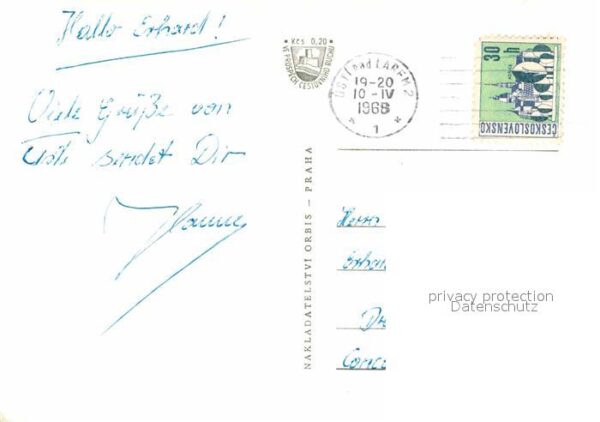 Hallo Erhard!
Viele Grüße von
sendet Dir
Hanne
Kčs 0,20
VE PROSPĚCH CESTOVNÍHO RUCHU
ÚSTÍ nad LABEM 2
19-20
10-IV
1968
* 1 *
30 h
ČESKOSLOVENSKO
NAKLADATELSTVÍ ORBIS – PRAHA
Herrn
privacy protection
Datenschutz